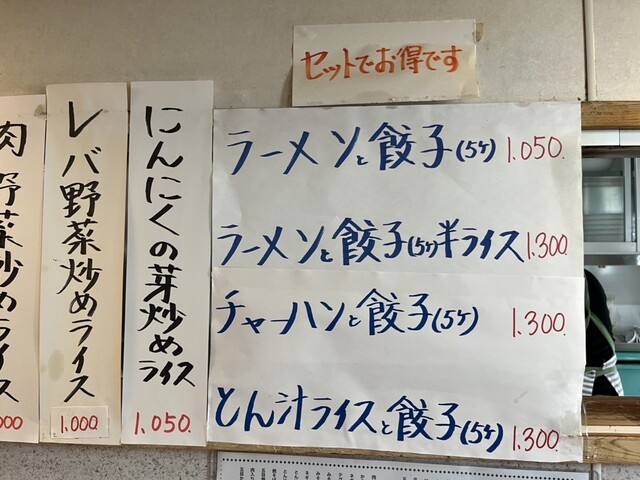 セットでお得です
ラーメンと餃子(5ケ) 1.050.
ラーメンと餃子(5ケ)半ライス 1.300.
チャーハンと餃子(5ケ) 1.300.
とん汁ライスと餃子(5ケ) 1.300.
にんにくの芽炒めライス
1.050.
レバ野菜炒めライス
1.000.
肉野菜炒めライス
000